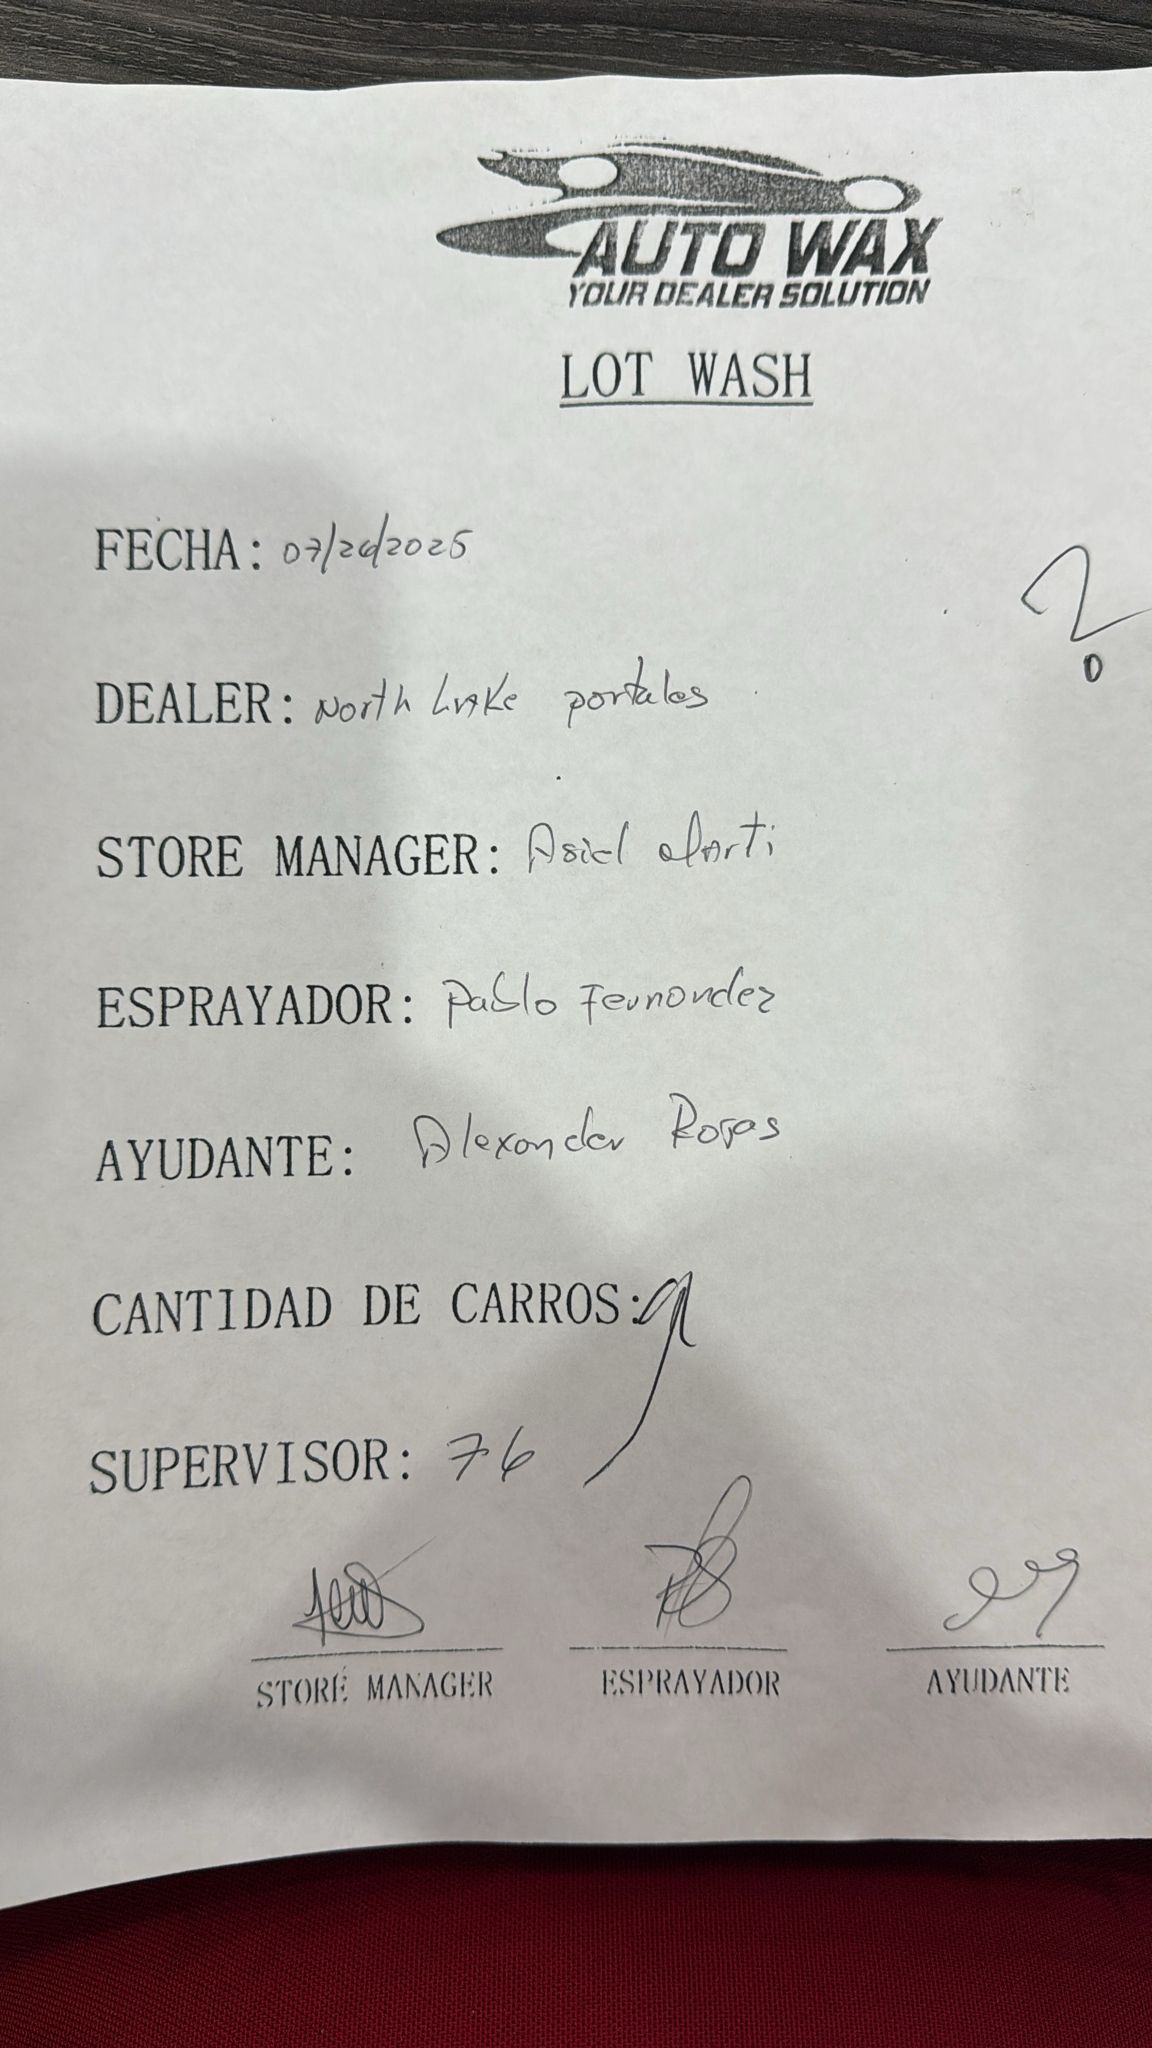 AUTO WAX
YOUR DEALER SOLUTION
LOT WASH
FECHA: 07/26/2025
?
DEALER: North Lake portales
STORE MANAGER: Asiel Marti
ESPRAYADOR: Pablo Fernandez
AYUDANTE: Alexander Rojas
CANTIDAD DE CARROS:
SUPERVISOR: 76
STORE MANAGER ESPRAYADOR AYUDANTE